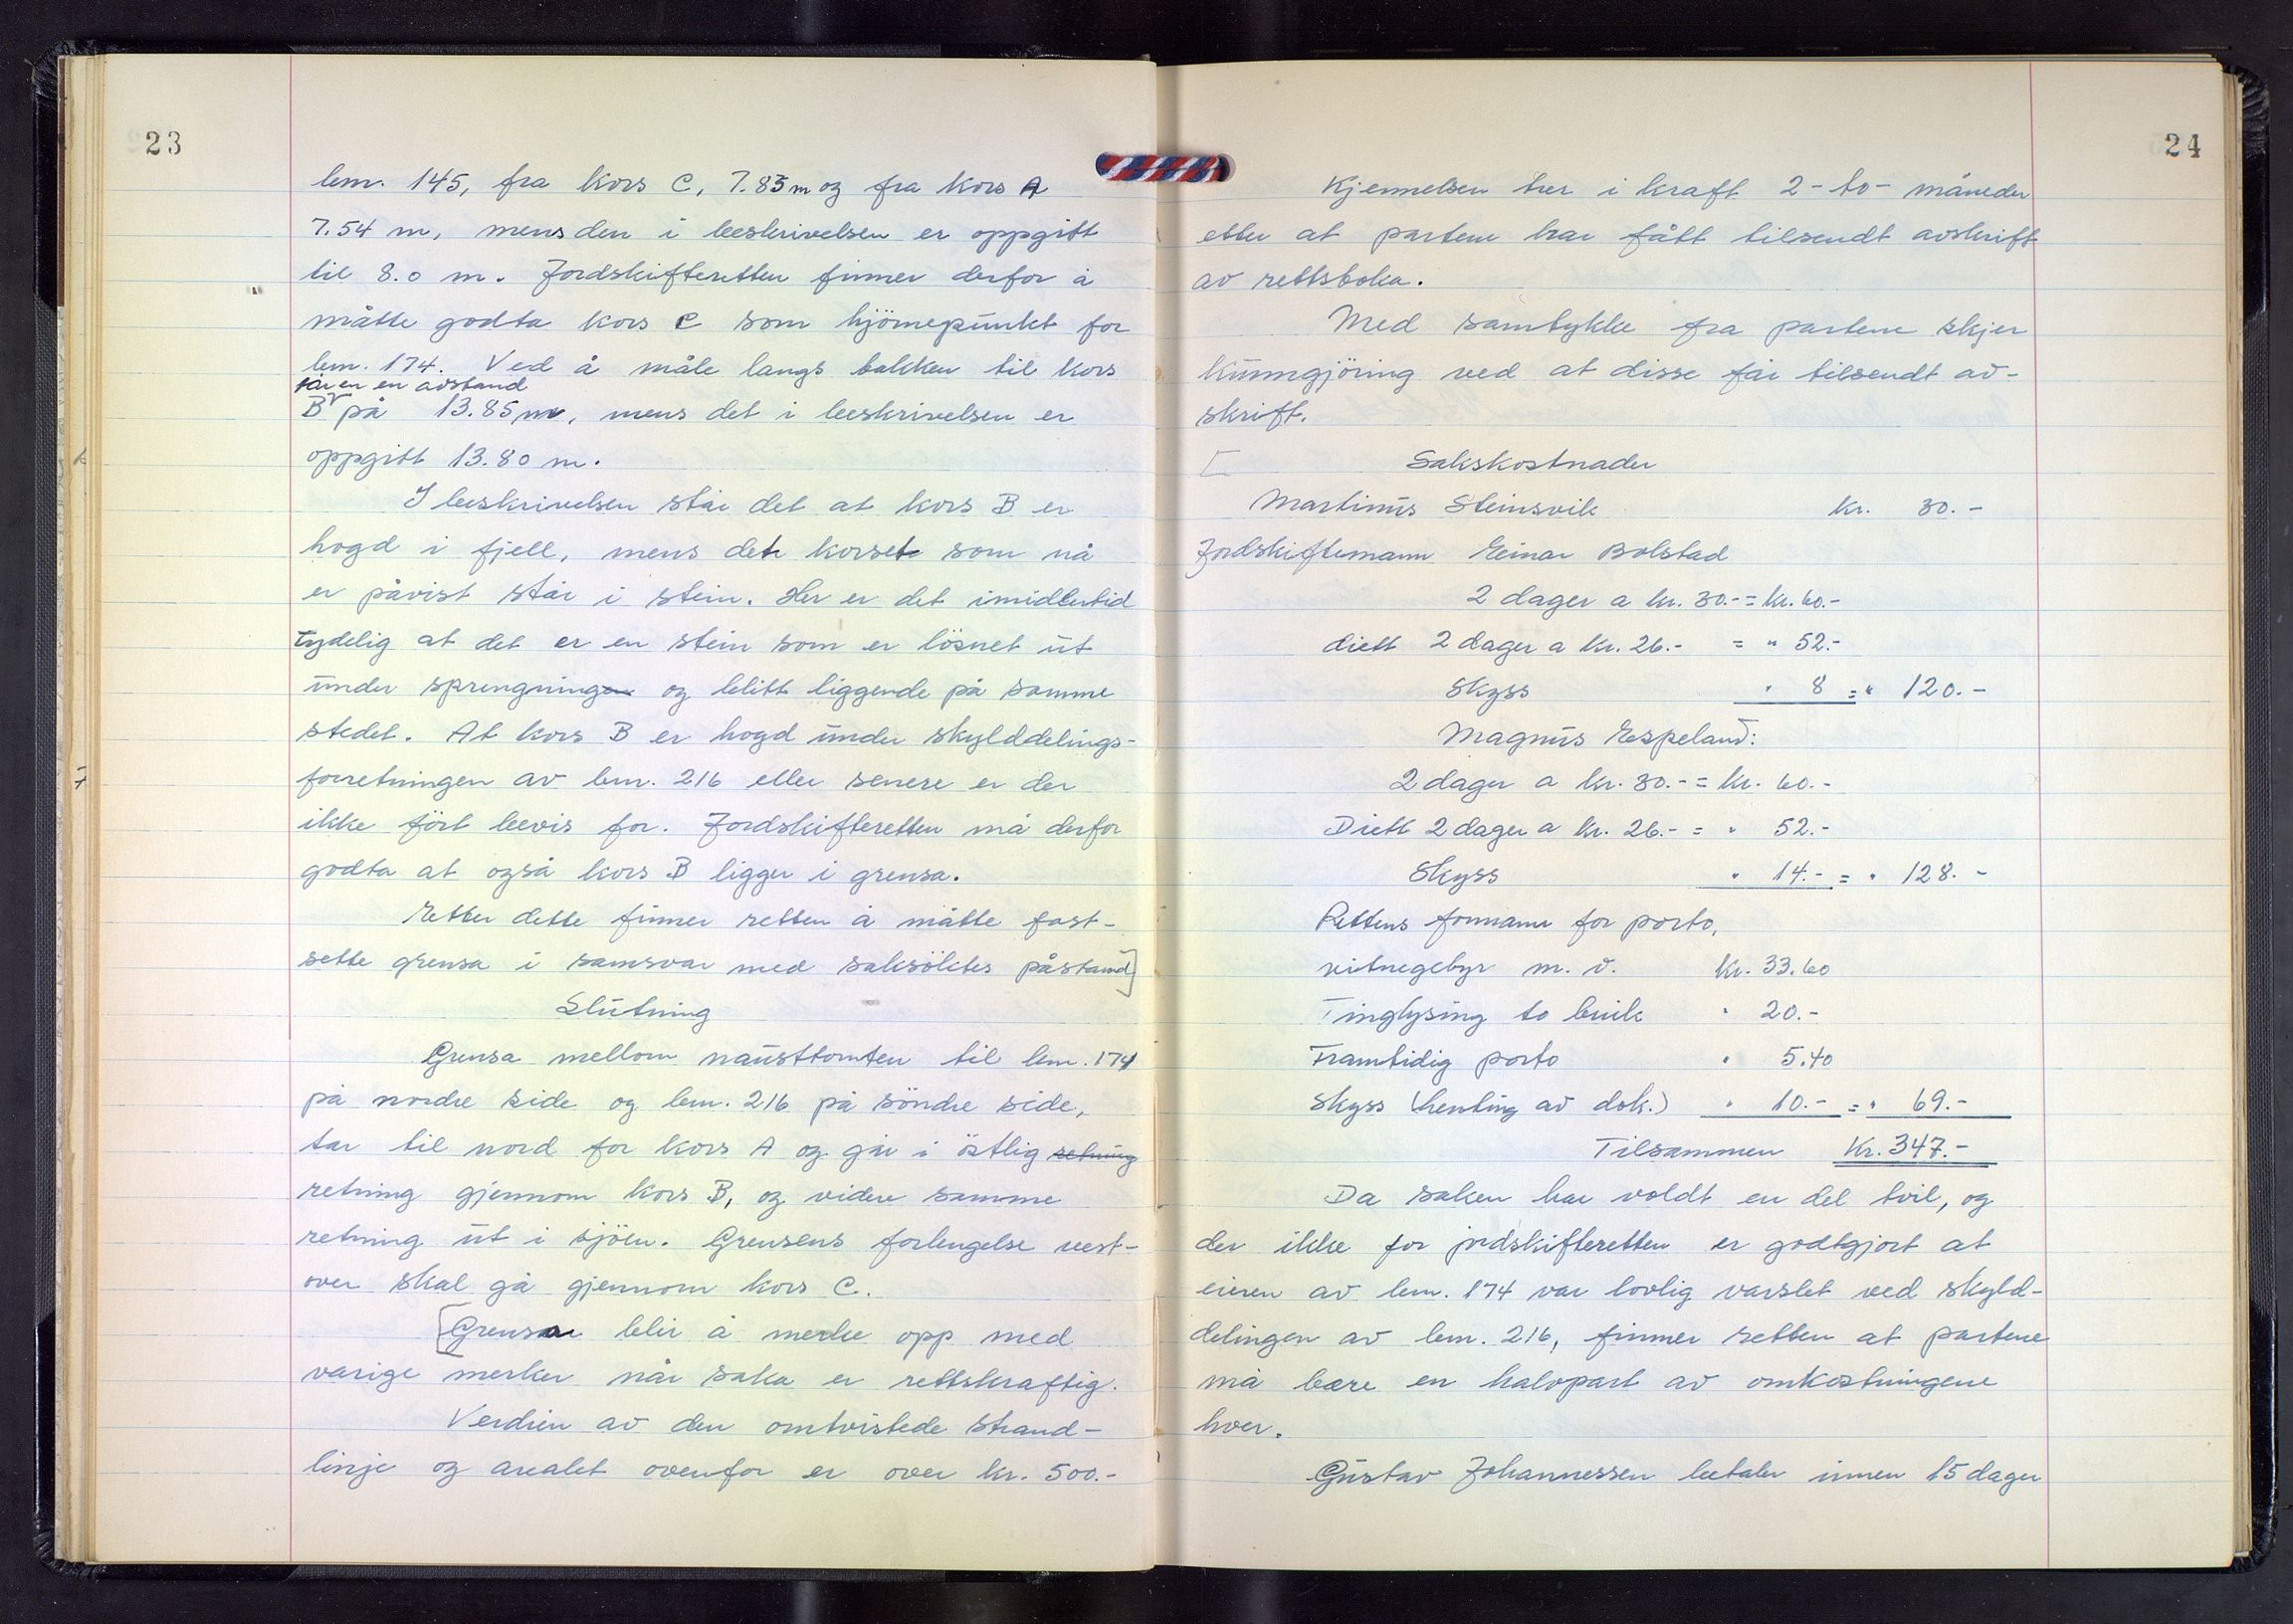 23
bnr. 145, fra kors C, 7.83 m og fra kors A
7.54 m, mens den i beskrivelsen er oppgitt
til 8.0 m. Jordskifteretten finner derfor å
måtte godta kors C som hjörnepunkt for
bnr. 174. Ved å måle langs bakken til kors
får en en avstand
B på 13.85 m, mens det i beskrivelsen er
oppgitt 13.80 m.
I beskrivelsen står det at kors B er
hogd i fjell, mens det korset som nå
er påvist står i stein. Her er det imidlertid
tydelig at det er en stein som er lösnet ut
under sprengningen og blitt liggende på samme
stedet. At kors B er hogd under skylddelings-
forretningen av bnr. 216 eller senere er der
ikke fört bevis for. Jordskifteretten må derfor
godta at også kors B ligger i grensa.
Etter dette finner retten å måtte fast-
sette grensa i samsvar med saksöktes påstand]
Slutning
Grensa mellom nausttomten til bnr. 174
på nordre side og bnr. 216 på söndre side,
tar til nord for kors A og går i östlig retning
retning gjennom kors B, og videre samme
retning ut i sjöen. Grensens forlengelse vest-
over skal gå gjennom kors C.
[Grensa blir å merke opp med
varige merker når saka er rettskraftig.
Verdien av den omtvistede strand-
linje og arealet ovenfor er over kr. 500.-
24
Kjennelsen trer i kraft 2-to- måneder
etter at partene har fått tilsendt avskrift
av rettsboka.
Med samtykke fra partene skjer
kunngjöring ved at disse får tilsendt av-
skrift.
[ Sakskostnader
Martinus Steinsvik kr. 30.-
Jordskiftemann Einar Bolstad
2 dager a kr. 30.- = kr. 60.-
diett 2 dager a kr. 26.- = " 52.-
Skyss " 8 = " 120.-
Magnus Espeland:
2 dager a kr. 30.- = kr. 60.-
Diett 2 dager a kr. 26.- = " 52.-
Skyss " 14.- = " 128.-
Rettens formann for porto,
vitnegebyr m. v. kr. 33.60
Tinglysing to bruk " 20.-
Framtidig porto " 5.40
Skyss (henting av dok.) " 10.- = " 69.-
Tilsammen Kr. 347.-
Da saken har voldt en del tvil, og
der ikke for jordskifteretten er godtgjort at
eieren av bnr. 174 var lovlig varslet ved skyld-
delingen av bnr. 216, finner retten at partene
må bære en halvpart av omkostningene
hver.
Gustav Johannessen betaler innen 15 dager